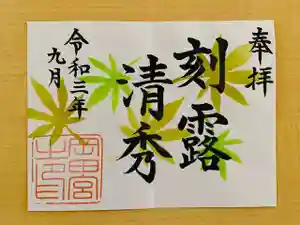 奉拝
刻露
清秀
令和三年
九月